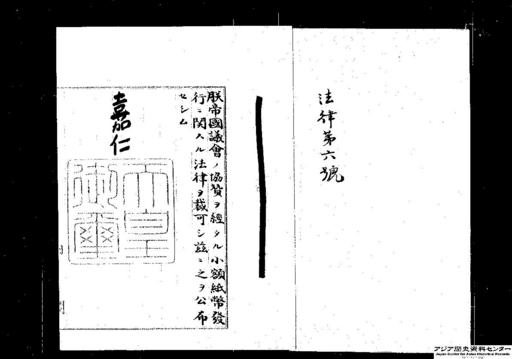 法律第六號
朕帝國議會ノ協賛ヲ經タル小額紙幣發
行ニ關スル法律ヲ裁可シ茲ニ之ヲ公布
セシム
嘉仁
天皇
御璽
アジア歴史資料センター
Japan Center for Asian Historical Records